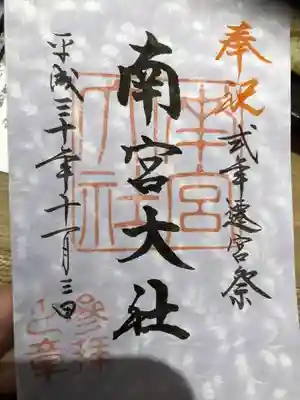 奉祝
式年遷宮祭
南宮大社
平成三十年十一月三日
南宮大社
参拝之章